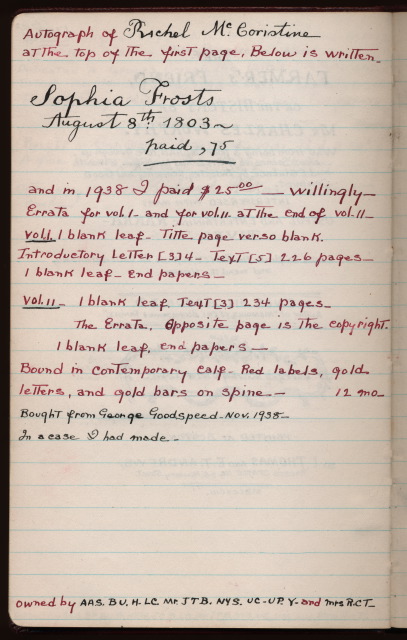 Autograph of Richel Mc Coristine
at the top of the first page. Below is written_
Sophia Frosts
August 8th 1803~
paid ,75
and in 1938 I paid $25 00 — willingly—
Errata for vol.I- and for vol.II at the end of vol-II—
vol.I. 1 blank leaf- Title page verso blank.
Introductory Letter [3]4- Text [5] 226 pages—
1 blank leaf- End papers—
Vol.II- 1 blank leaf. Text [3] 234 pages—
The Errata. Opposite page is the copyright.
1 blank leaf, end papers—
Bound in contemporary calf- Red labels, gold
letters, and gold bars on spine.— 12 mo_
Bought from George Goodspeed-Nov.1938—
In a case I had made-
owned by AAS. BU. H. LC. Mr. JTB. NYS. UC-UP. Y-and Mrs R.C.T—